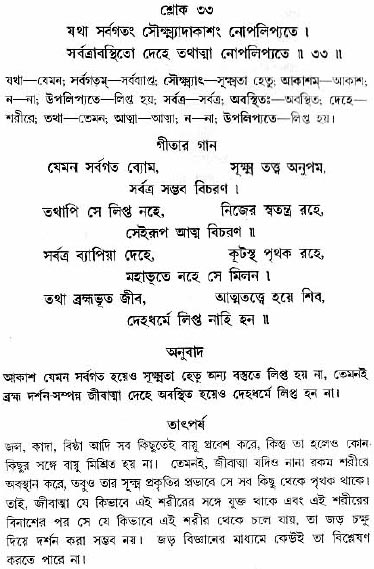 শ্লোক ৩৩
যথা সর্বগতং সৌক্ষ্ম্যাদাকাশং নোপলিপ্যতে ।
সর্বত্রাবস্থিতো দেহে তথাত্মা নোপলিপ্যতে ॥ ৩৩ ॥
যথা—যেমন; সর্বগতম্—সর্বব্যাপ্ত; সৌক্ষ্ম্যাৎ—সূক্ষ্মতা হেতু; আকাশম্—আকাশ;
ন—না; উপলিপ্যতে—লিপ্ত হয়; সর্বত্র—সর্বত্র; অবস্থিতঃ—অবস্থিত; দেহে—
শরীরে; তথা—তেমন; আত্মা—আত্মা; ন—না; উপলিপ্যতে—লিপ্ত হয়।
গীতার গান
যেমন সর্বগত ব্যোম, সূক্ষ্ম তত্ত্ব অনুপম,
সর্বত্র সম্ভব বিচরণ ।
তথাপি সে লিপ্ত নহে, নিজের স্বতন্ত্র রহে,
সেইরূপ আত্ম বিচরণ ॥
সর্বত্র ব্যাপিয়া দেহে, কূটস্থ পৃথক রহে,
মহাভূতে নহে সে মিলন ।
তথা ব্রহ্মভূত জীব, আত্মতত্ত্বে হয়ে শিব,
দেহধর্মে লিপ্ত নাহি হন ॥
অনুবাদ
আকাশ যেমন সর্বগত হয়েও সূক্ষ্মতা হেতু অন্য বস্তুতে লিপ্ত হয় না, তেমনই
ব্রহ্ম দর্শন-সম্পন্ন জীবাত্মা দেহে অবস্থিত হয়েও দেহধর্মে লিপ্ত হন না।
তাৎপর্য
জল, কাদা, বিষ্ঠা আদি সব কিছুতেই বায়ু প্রবেশ করে, কিন্তু তা হলেও কোন-
কিছুর সঙ্গে বায়ু মিশ্রিত হয় না। তেমনই, জীবাত্মা যদিও নানা রকম শরীরে
অবস্থান করে, তবুও তার সূক্ষ্ম প্রকৃতির প্রভাবে সে সব কিছু থেকে পৃথক থাকে।
তাই, জীবাত্মা যে কিভাবে এই শরীরের সঙ্গে যুক্ত থাকে এবং এই শরীরের
বিনাশের পর সে যে কিভাবে এই শরীর থেকে চলে যায়, তা জড় চক্ষু
দিয়ে দর্শন করা সম্ভব নয়। জড় বিজ্ঞানের মাধ্যমে কেউই তা বিশ্লেষণ
করতে পারে না।